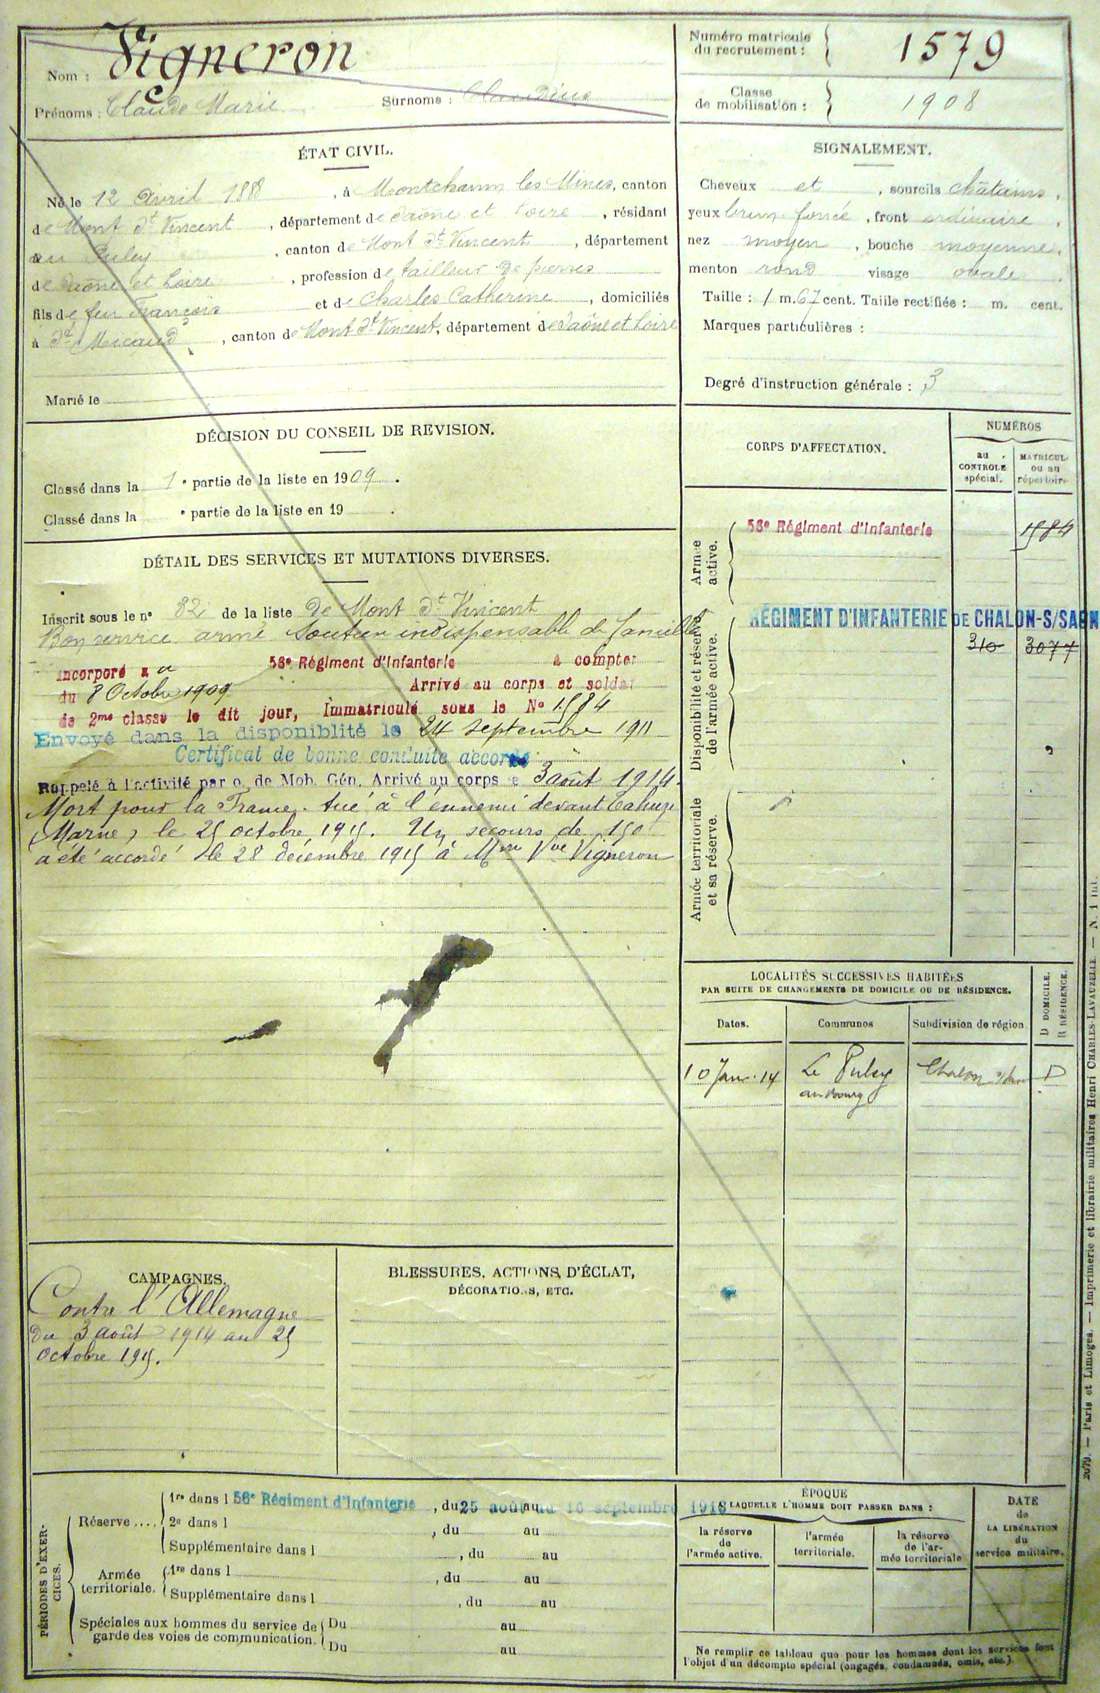 Nom : Vigneron
Prénoms : Claude Marie Surnoms : Claudius
Numéro matricule
du recrutement : 1579
Classe
de mobilisation : 1908
ÉTAT CIVIL.
Né le 12 Avril 1888, à Montchanin les Mines, canton
de Mont St Vincent, département de Saône et Loire, résidant
au Puley, canton de Mont St Vincent, département
de Saône et Loire, profession de tailleur de pierres
fils de feu François et de Charles Catherine, domiciliés
à St Micaud, canton de Mont St Vincent, département de Saône et Loire
Marié le
SIGNALEMENT.
Cheveux et, sourcils châtains,
yeux brun foncé, front ordinaire,
nez moyen, bouche moyenne,
menton rond visage ovale
Taille : 1 m. 67 cent. Taille rectifiée : m. cent.
Marques particulières :
Degré d'instruction générale : 3
DÉCISION DU CONSEIL DE REVISION.
Classé dans la 1e partie de la liste en 1909.
Classé dans la e partie de la liste en 19 .
DÉTAIL DES SERVICES ET MUTATIONS DIVERSES.
Inscrit sous le n° 82 de la liste de Mont St Vincent
Bon service armé Soutien indispensable de famille
Incorporé au 56e Régiment d'Infanterie à compter
du 8 Octobre 1909 Arrivé au corps et soldat
de 2me classe le dit jour, Immatriculé sous le No 1584
Envoyé dans la disponiblité le 24 septembre 1911
Certificat de bonne conduite accordé
Rappelé à l'activité par o. de Mob. Gén. Arrivé au corps le 3 août 1914.
Mort pour la France. tué à l'ennemi devant Tahure
(Marne) le 25 octobre 1915. Un secours de 150
a été accordé le 28 décembre 1915 à Mme Vve Vigneron
CORPS D'AFFECTATION.
NUMÉROS
au
CONTROLE
spécial.
MATRICUL
ou au
répertoire
Armée
active.
56e Régiment d'Infanterie 1584
Disponibilité et réserve
de l'armée active.
RÉGIMENT D'INFANTERIE DE CHALON-S/SAÔN
310 3077
Armée territoriale
et sa réserve.
LOCALITÉS SUCCESSIVES HABITÉES
PAR SUITE DE CHANGEMENTS DE DOMICILE OU DE RÉSIDENCE.
Dates. Communes Subdivision de région
D DOMICILE.
R RÉSIDENCE.
10 Janv. 14 Le Puley Chalon s/Saône D
au bourg
CAMPAGNES.
Contre l'Allemagne
Du 3 août 1914 au 25
Octobre 1915.
BLESSURES, ACTIONS D'ÉCLAT,
DÉCORATIONS, ETC.
PÉRIODES D'EXER-
CICES.
Réserve .... 1re dans l 56e Régiment d'Infanterie, du 25 août au 16 septembre 1913
2e dans l , du au
Supplémentaire dans l , du au
Armée
territoriale. 1re dans l , du au
Supplémentaire dans l , du au
Spéciales aux hommes du service de
garde des voies de communication. Du au
Du au
ÉPOQUE
À LAQUELLE L'HOMME DOIT PASSER DANS :
la réserve
de
l'armée active.
l'armée
territoriale.
la réserve
de l'ar-
mée territoriale
DATE
de
LA LIBÉRATION
du
service militaire.
Ne remplir ce tableau que pour les hommes dont les services font
l'objet d'un décompte spécial (engagés, condamnés, omis, etc.).
2079. — Paris et Limoges. — Imprimerie et librairie militaires Henri CHARLES-LAVAUZELLE. — N. 1 int.